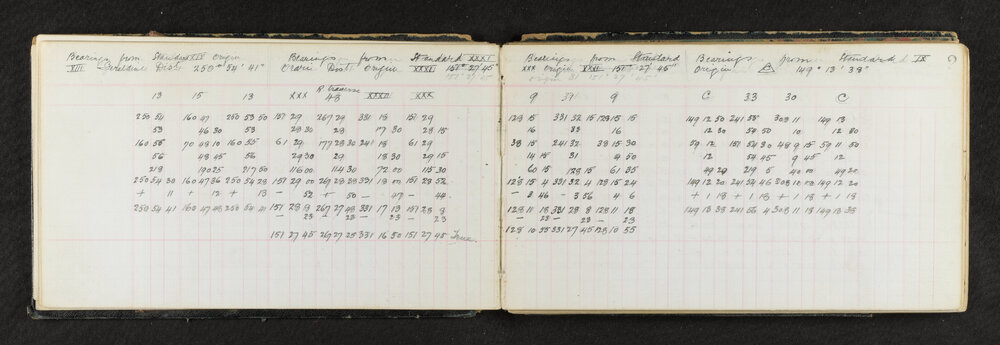 Bearings from Standard XIX origin
XIII Geraldine Dist. 250° 54' 41"
13 15 13
250 54 160 47 250 53 50
53 46 30 53
160 55 70 48 10 160 55
56 48 45 56
218 190 25 217 50
250 54 30 160 47 36 250 54 28
+ 11 + 12 + 13
250 54 41 160 47 48 250 54 41
Bearings from Standard XXXI
Orari Dist. origin XXXI 151° 27' 45"
XXX R traverse 43 XXXII XXX
151 29 267 29 331 18 151 29
28 30 29 17 30 28 15
61 29 177 28 30 241 18 61 29
29 30 29 18 30 29 15
116 00 114 30 72 00 115 30
151 29 00 267 28 38 331 18 00 151 28 52
- 52 - 50 - 47 - 44
151 28 8 267 27 48 331 17 13 151 28 8
- 23 - 23 - 23 - 23
151 27 45 267 27 25 331 16 50 151 27 45 True
Bearings from Standard
XXX origin XXXI 151° 27' 45"
9 31 9
128 15 331 32 15 128 15 15
16 33 16
38 15 241 32 38 15 30
14 15 31 4 50
60 15 128 15 61 35
128 15 4 331 32 4 128 15 24
- 3 46 - 3 56 4 6
128 11 18 331 28 8 128 11 18
- 23 - 23 - 23
128 10 55 331 27 45 128 10 55
Bearings from Standard IX
origin 149° 13' 38"
C 33 30 C
149 12 50 241 55 308 11 149 13
12 30 54 50 10 12 80
59 12 151 54 30 48 9 15 59 11 50
12 54 45 9 45 12
49 20 219 5 40 00 49 20
149 12 20 241 54 46 308 10 00 149 12 20
+ 1 18 + 1 18 + 1 18 + 1 18
149 13 38 241 56 4 308 11 18 149 13 38